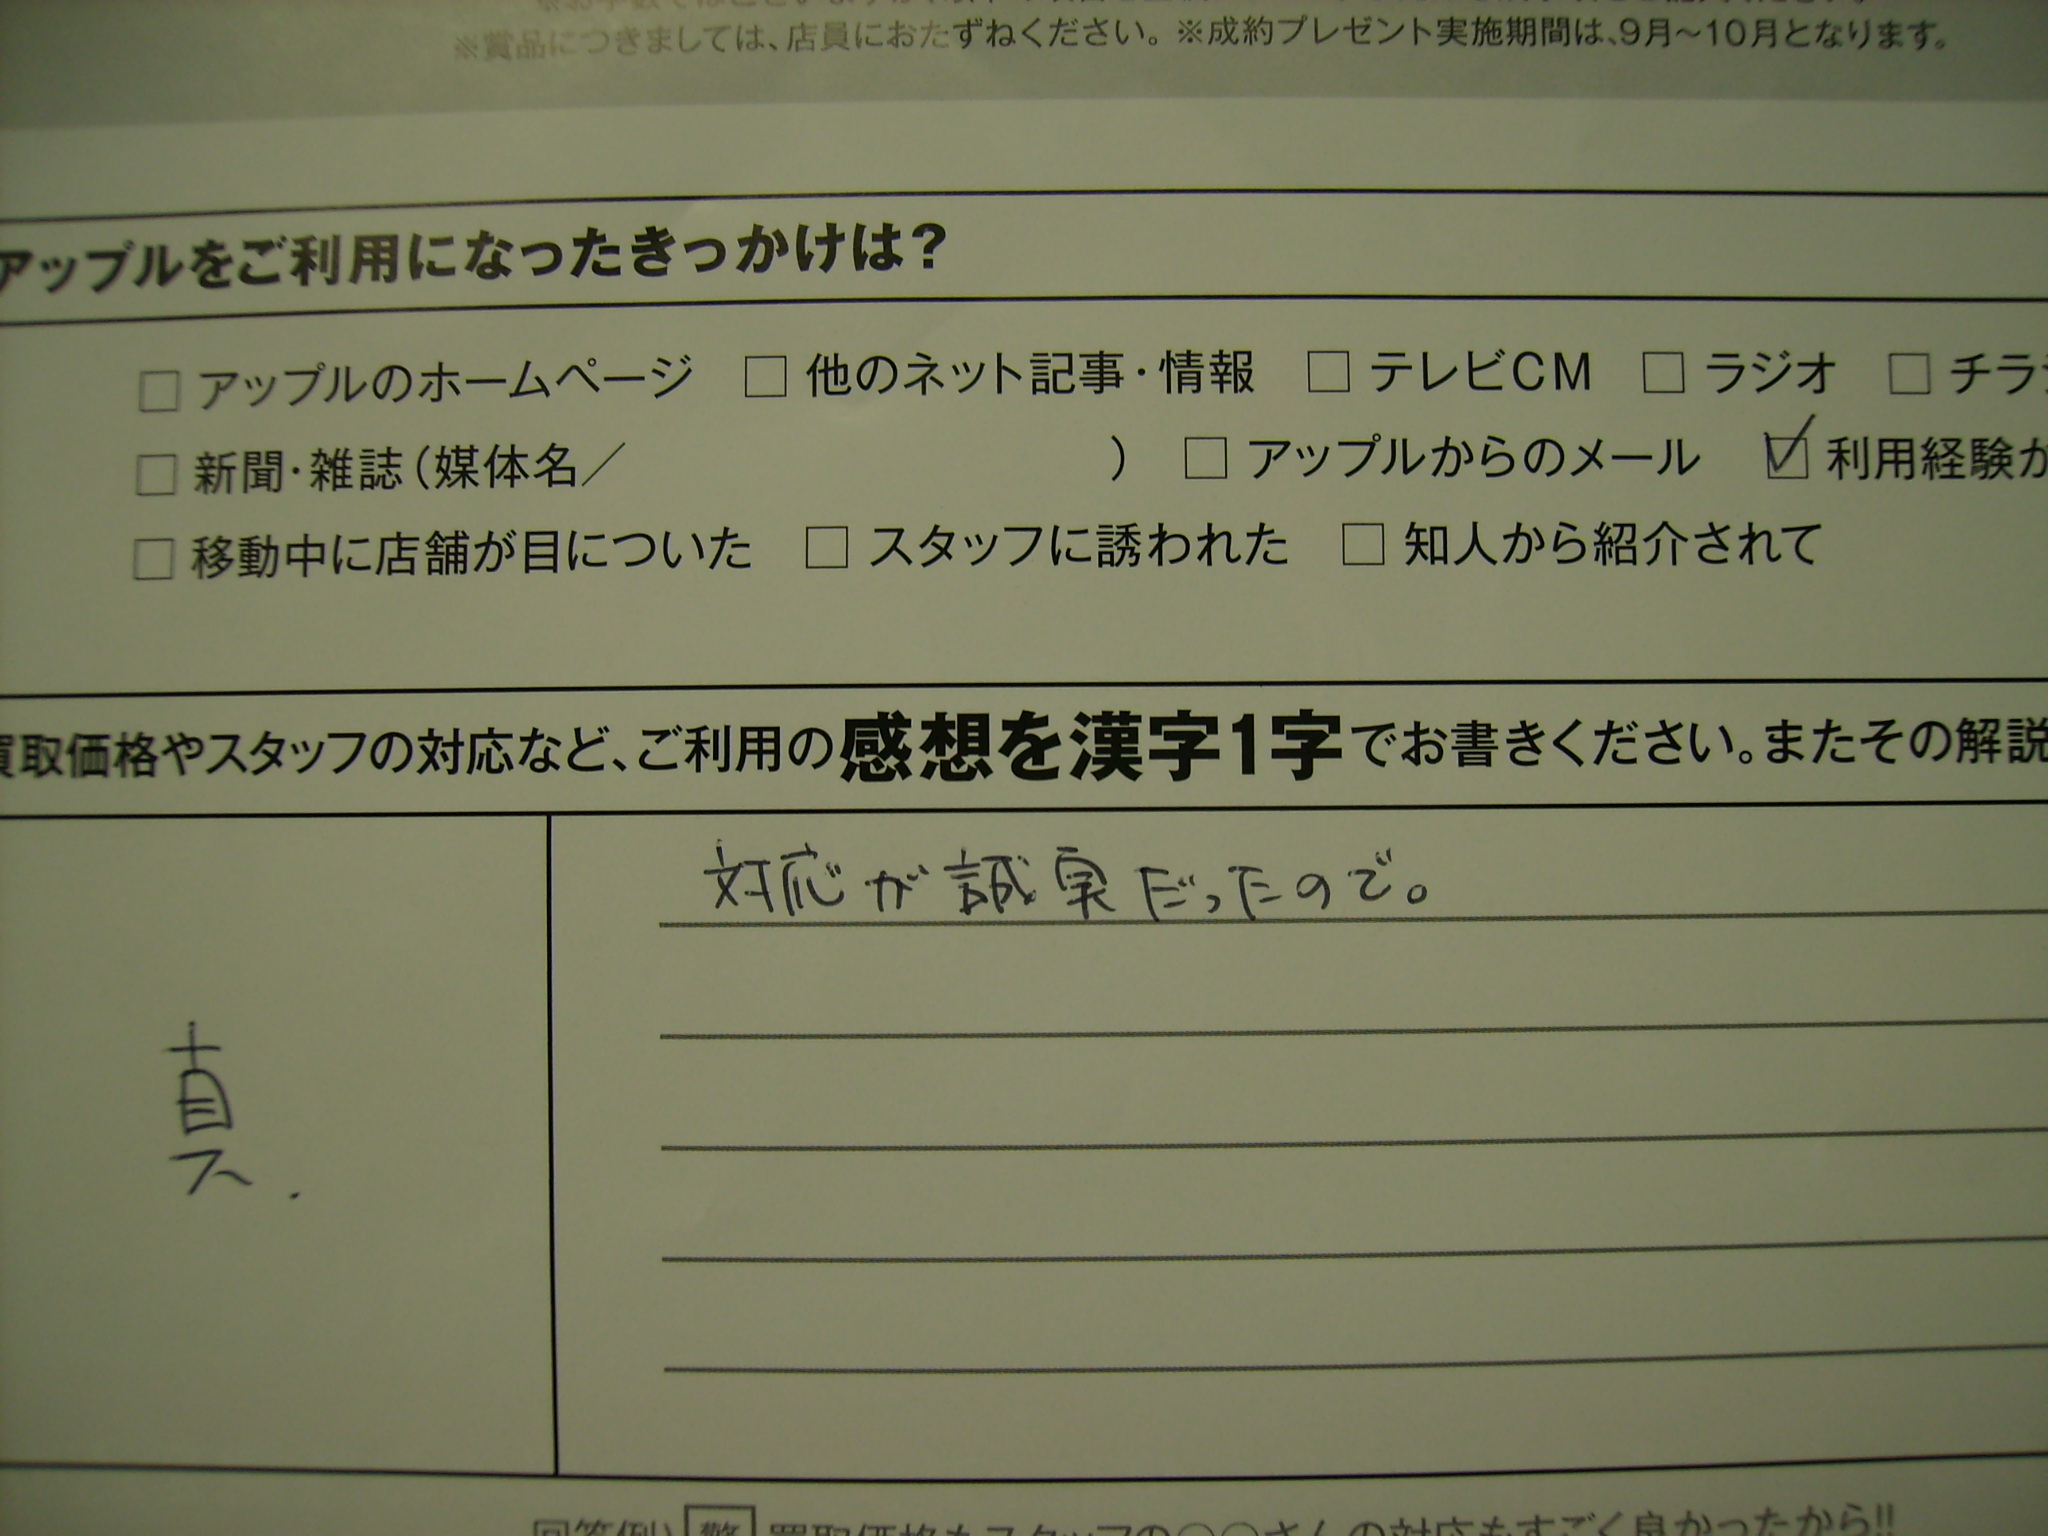 ※賞品につきましては、店員におたずねください。※成約プレゼント実施期間は、9月〜10月となります。
アップルをご利用になったきっかけは？
□ アップルのホームページ □ 他のネット記事・情報 □ テレビCM □ ラジオ □ チラ
□ 新聞・雑誌(媒体名／ ) □ アップルからのメール ☑ 利用経験が
□ 移動中に店舗が目についた □ スタッフに誘われた □ 知人から紹介されて
買取価格やスタッフの対応など、ご利用の感想を漢字1字でお書きください。またその解説
対応が誠実だったので。
真.
回答例) 驚 買取価格もスタッフの○○さんの対応もすごく良かったから!!